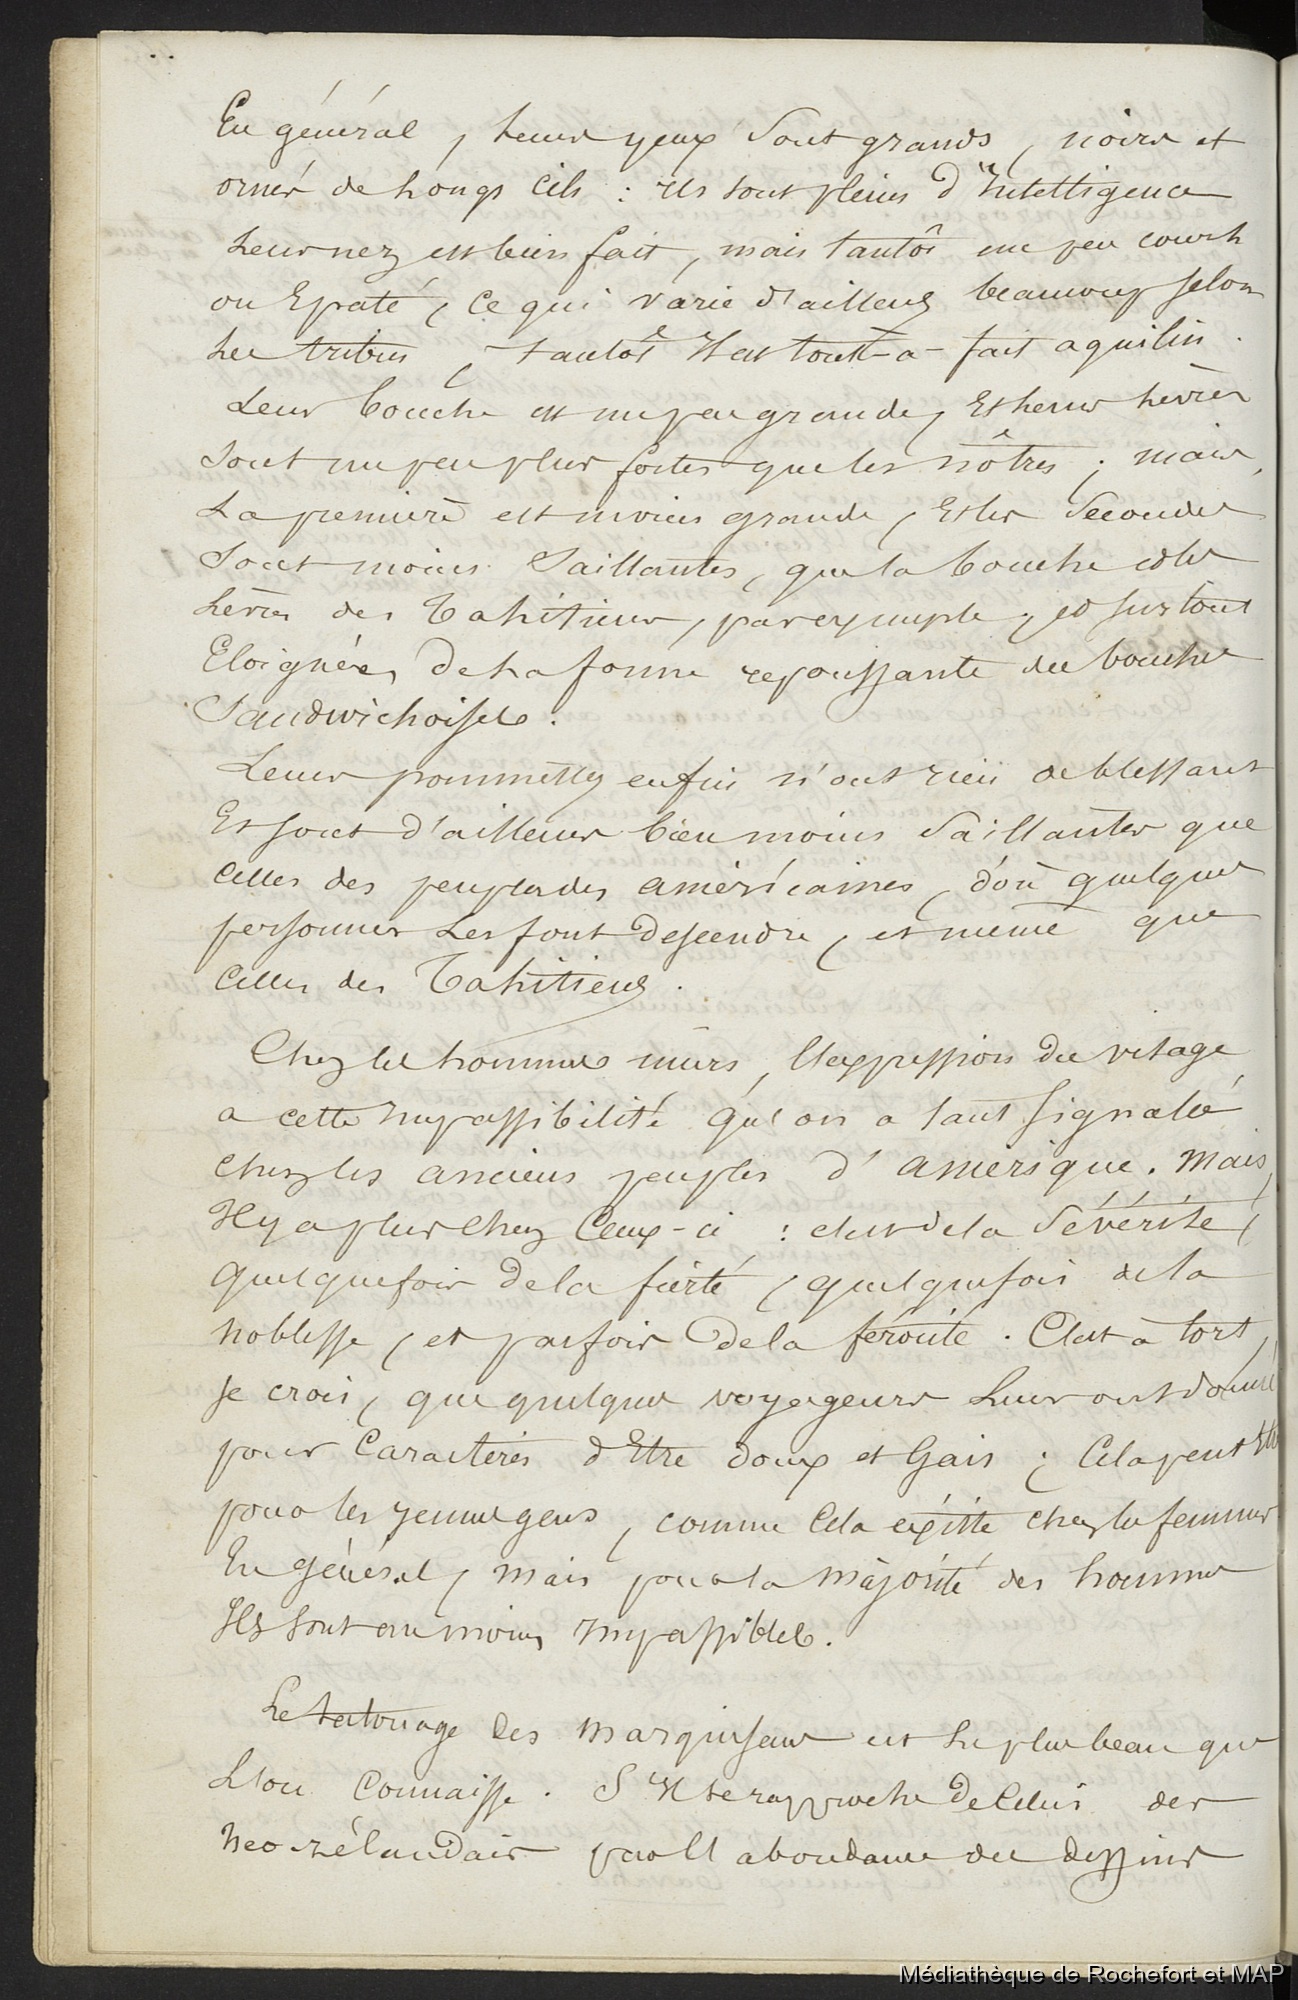 En général, leurs yeux sont grands, noirs et
ornés de longs cils : ils sont pleins d'Intelligence
Leur nez est bien fait, mais tantôt un peu court
ou Epaté, ce qui varie d'ailleurs beaucoup selon
les tribus, tantôt Il est tout-a-fait aquilin.
Leur bouche est un peu grande, Et leurs lèvres
sont un peu plus fortes que les nôtres ; mais,
La première est moins grande, Et les Secondes
sont moins Saillantes, que la bouche et les
lèvres des Tahitiens, par exemple, et surtout
Eloignées, de la forme repoussante des bouches
Sandwichoises.
Leurs pommettes enfin n'ont rien de blessant
Et sont d'ailleurs bien moins Saillantes que
celles des peuplades américaines, d'où quelques
personnes les font descendre, et même que
celles des Tahitiens.
Chez les hommes mûrs, l'expression du visage
a cette Impassibilité qu'on a tant signalée
chez les anciens peuples d'amérique. Mais,
Il y a plus chez Ceux-ci : c'est de la Sévérité,
quelquefois de la fierté, quelquefois de la
noblesse, et parfois de la férocité. C'est à tort,
je crois, que quelques voyageurs leur ont donné
pour Caractères d'Etre doux et Gais ; Cela peut Etre
pour les jeunes gens, comme Cela existe chez les femmes
En général, mais pour la majorité des hommes
Ils sont au moins Impassibles.
Le tatouage des Marquisans est le plus beau que
L'on Connaisse. S'Il se rapproche de Celui des
Néo-zélandais par l'abondance des dessins
Médiathèque de Rochefort et MAP